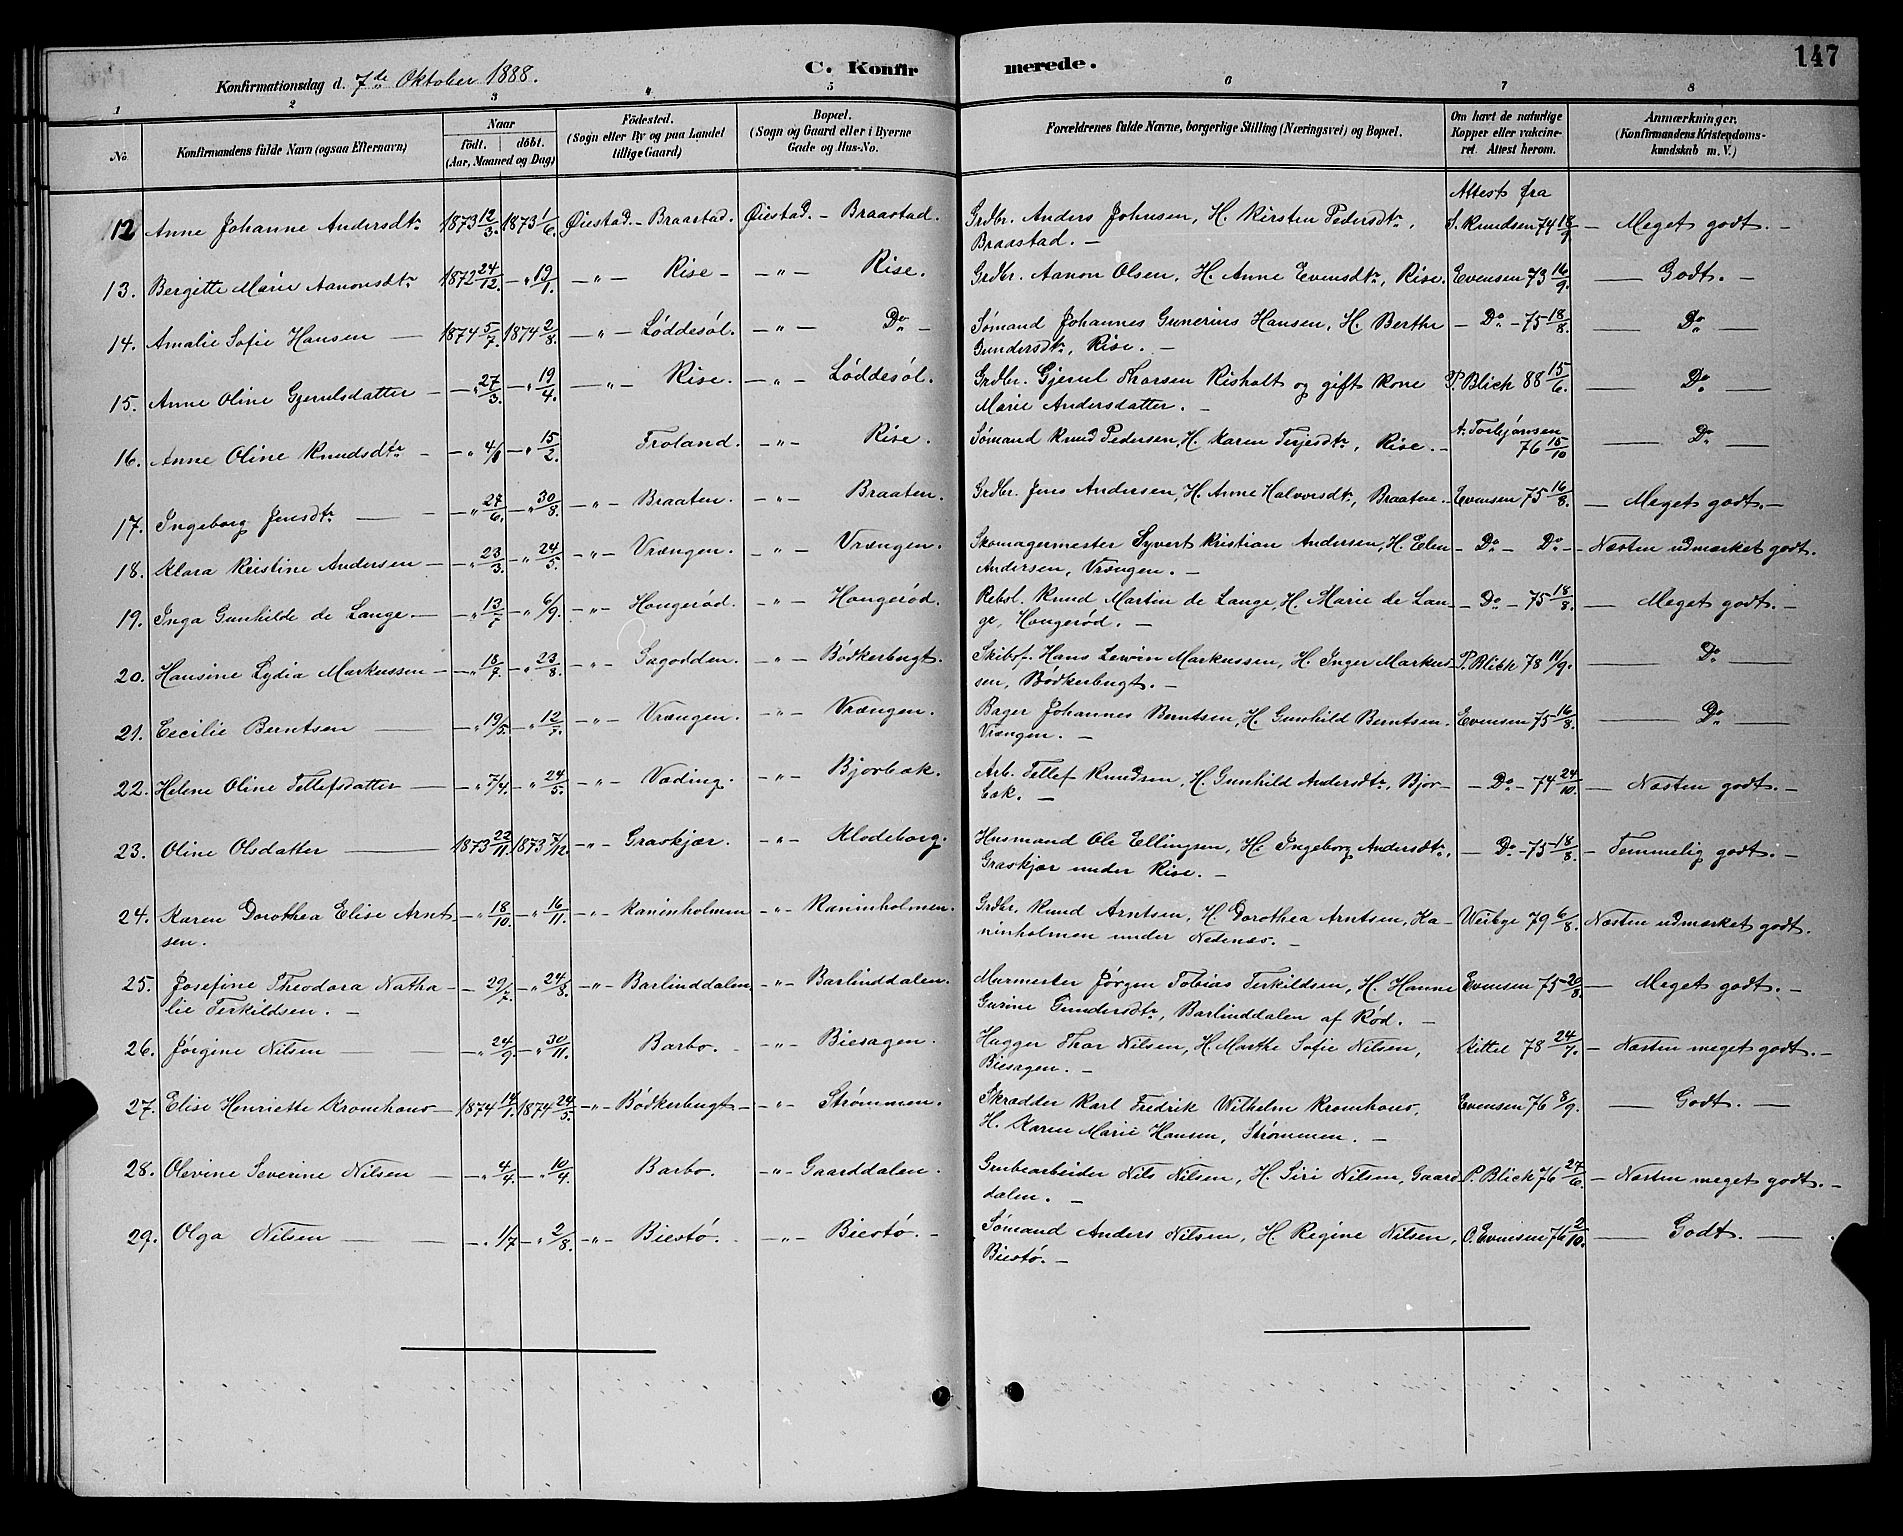 147
C. Konfirmerede.
Konfirmationsdag d. 7de Oktober 1888.
1 2 3 4 5 6 7 8
No. Konfirmandens fulde Navn (ogsaa Efternavn) Naar født. døbt. (Aar, Maaned og Dag) Fødested. (Sogn eller By og paa Landet tillige Gaard) Bopæl. (Sogn og Gaard eller i Byerne Gade og Hus-No. Forældrenes fulde Navne, borgerlige Stilling (Næringsvei) og Bopæl. Om havt de naturlige Kopper eller vakcineret. Attest herom. Anmærkninger. (Konfirmandens Kristendomskundskab m. V.)
Attest fra
12 Anne Johanne Andersdtr 1873 12/3. 1873 1/6. Øiestad. - Braastad. Øiestad. - Braastad. Grdbr. Anders Johnsen, H. Kirsten Pedersdtr, S. Knudsen 74 18/9 - Meget godt. -
Braastad. -
13. Bergitte Marie Aanonsdtr 1872 24/12. - " 19/1. - " - Rise - - " - Rise. Grdbr. Aanon Olsen, H. Anne Evensdtr, Rise. Evensen 73 16/9. - Godt. -
14. Amalie Sofie Hansen - 1874 5/7. 1874 2/8. - " - Løddesøl. - " - Do - Sømand Johannes Gunerius Hansen, H. Berthe - Do - 75 18/8. - Do -
Gundersdtr, Rise. -
15. Anne Oline Gjerulsdatter - " 27/3. - " 19/4. - " - Rise. - " - Løddesøl. Grdbr. Gjerul Tharsen Risholt og gift Kone P. Blich 88 15/6. - Do -
Marie Andersdatter. -
16. Anne Oline Knudsdtr - - " 4/1 - " 15/2. Froland. - " - Rise. Sømand Knud Pedersen, H. Karen Terjesdtr, Rise. - A. Torbjønsen 76 15/10 - Do -
17. Ingeborg Jensdtr - - " 27/6. - " 30/8. - " - Braaten. - " - Braaten. Grdbr. Jens Andersen, H. Anne Halvorsdtr, Braaten. Evensen 75 16/8. - Meget godt. -
18. Klara Kristine Andersen - - " 23/3. - " 24/5. - " - Vrængen. - " - Vrængen. Skomagermester Syvert Kristian Andersen, H. Elen - Do - Do - - Næsten udmærket godt.
Andersen, Vrængen. -
19. Inga Gunhilde de Lange. - - " 13/7 - " 6/9. - " - Hougerød. - " - Hougerød. Rebsl. Knud Martin de Lange, H. Marie de Lan- - Do - 75 18/8. - Meget godt. -
ge, Hougerød. -
20. Hansine Lydia Markussen - - " 18/7. - " 23/8. - " - Sagodden. - " - Bødkerbugt. Skibsf. Hans Lewin Markussen, H. Inger Markus- P. Blich 78 11/9. - Do -
sen, Bødkerbugt. -
21. Cecilie Berntsen - - " 19/5. - " 12/7. - " - Vrængen. - " - Vrængen. Bager Johannes Berntsen, H. Gunhild Berntsen. Evensen 75 16/8. - Do -
Vrængen. -
22. Helene Oline Tellefsdatter - - " 7/4. - " 24/5. - " - Vading. - " - Bjorbæk. Arb. Tellef Knudsen, H. Gunhild Andersdtr, Bjor- - Do - 74 24/10. - Næsten godt. -
bæk. -
23. Oline Olsdatter - 1873 22/11. 1873 7/12. - " - Graskjær. - " - Klodeborg. Husmand Ole Ellingsen, H. Ingeborg Andersdtr, - Do - 75 18/8. - Temmelig godt. -
Graskjær under Rise. -
24. Karen Dorothea Elise Arnt- - " 18/10. - " 16/11. - " - Kaninholmen - " - Kaninholmen. Grdbr. Knud Arntsen, H. Dorothea Arntsen, Ka- Weibye 79 6/8. Næsten udmærket godt.
sen. ninholmen under Nedenæs. -
25. Josefine Theodora Natha- - " 29/7. - " 24/8. - " - Barlinddalen. - " - Barlinddalen. Murmester Jørgen Tobias Terkildsen, H. Hanne Evensen 75 20/8. - Meget godt. -
lie Terkildsen. - Gurine Gundersdtr, Barlinddalen af Rød. -
26. Jørgine Nilsen - - " 24/9. - " 30/11. Barbo. - " - Biesagen. Hugger Thor Nilsen, H. Marthe Sofie Nilsen, Kittel 78 24/7. - Næsten meget godt. -
Biesagen. -
27. Elise Henriette Kromhous - 1874 14/1. 1874 24/5. - " - Bødkerbugt - - " - Strømmen. Skrædder Karl Fredrik Wilhelm Kromhous, Evensen 76 8/9. - Godt. -
H. Karen Marie Hansen, Strømmen. -
28. Olevine Severine Nilsen - - " 4/4. - " 10/4. Barbo. - " - Gaarddalen. Grubearbeider Nils Nilsen, H. Siri Nilsen, Gaard- P. Blich 76 27/6. - Næsten meget godt. -
dalen. -
29. Olga Nilsen - - " 1/7 - " 2/8. - " - Biestø. - " - Biestø. - Sømand Anders Nilsen, H. Regine Nilsen, O. Evensen 76 2/10. - Godt. -
Biestø. -